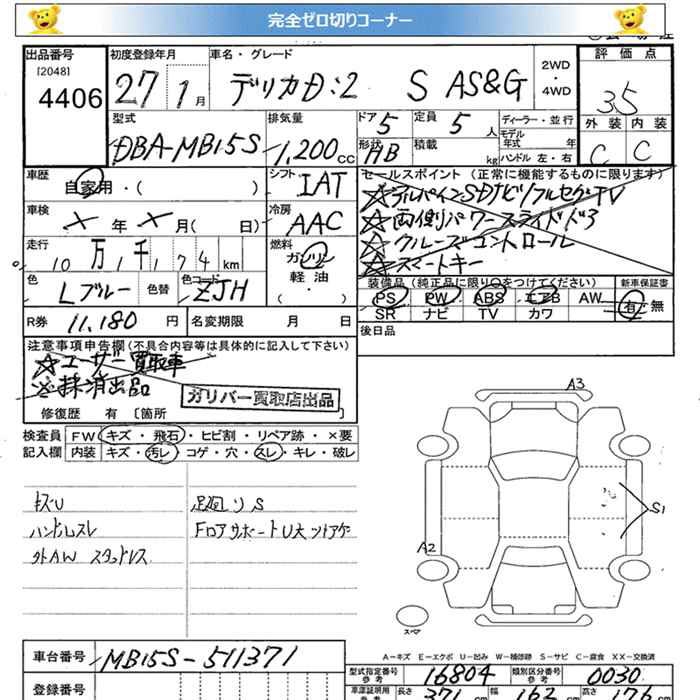 完全ゼロ切りコーナー
出品番号 初度登録年月 車名・グレード 評価点
[2048]
4406 27年 1月 デリカD:2 S AS&G 2WD・4WD 3.5
型式 排気量 ドア 定員 ディーラー・並行 外装 内装
DBA-MB15S 1,200cc 5 5人 モデル年式 年 C C
形状 HB 積載 kg ハンドル 左・右
車歴 自家用・( ) シフト IAT
セールスポイント(正常に機能するものに限ります)
☆アルパインSDナビ/フルセグTV
☆両側パワースライドドア
☆クルーズコントロール
☆スマートキー
車検 ×年×月( 日) 冷房 AAC
走行 10万1千174km 燃料 ガソリン
軽油
( ・ )
色 Lブルー 色替 色コード ZJH
装備品(純正品に限り○をつけてください) 新車保証書
PS PW ABS エアB AW 有・無
SR ナビ TV カワ
R券 11,180円 名変期限 月 日
後日品
注意事項申告欄(不具合内容等は具体的に記入して下さい)
☆ユーザー買取車
※抹消出品
ガリバー買取店出品
修復歴 有〔箇所 〕
検査員 FW キズ・飛石・ヒビ割・リペア跡・×要
記入欄 内装 キズ・汚レ・コゲ・穴・スレ・キレ・破レ
キズU 足廻りS
ハンドルスレ FロアサポートU大
外AW スタッドレス
A3
S1
A2
スペア
A-キズ E-エクボ U-凹み W-補修跡 S-サビ C-腐食 XX-交換済
車台番号 MB15S-511371
型式指定番号 参考 16804 類別区分番号 参考 0030
登録番号
車庫証明用 参考 長さ 371 cm 幅 162 cm 高さ